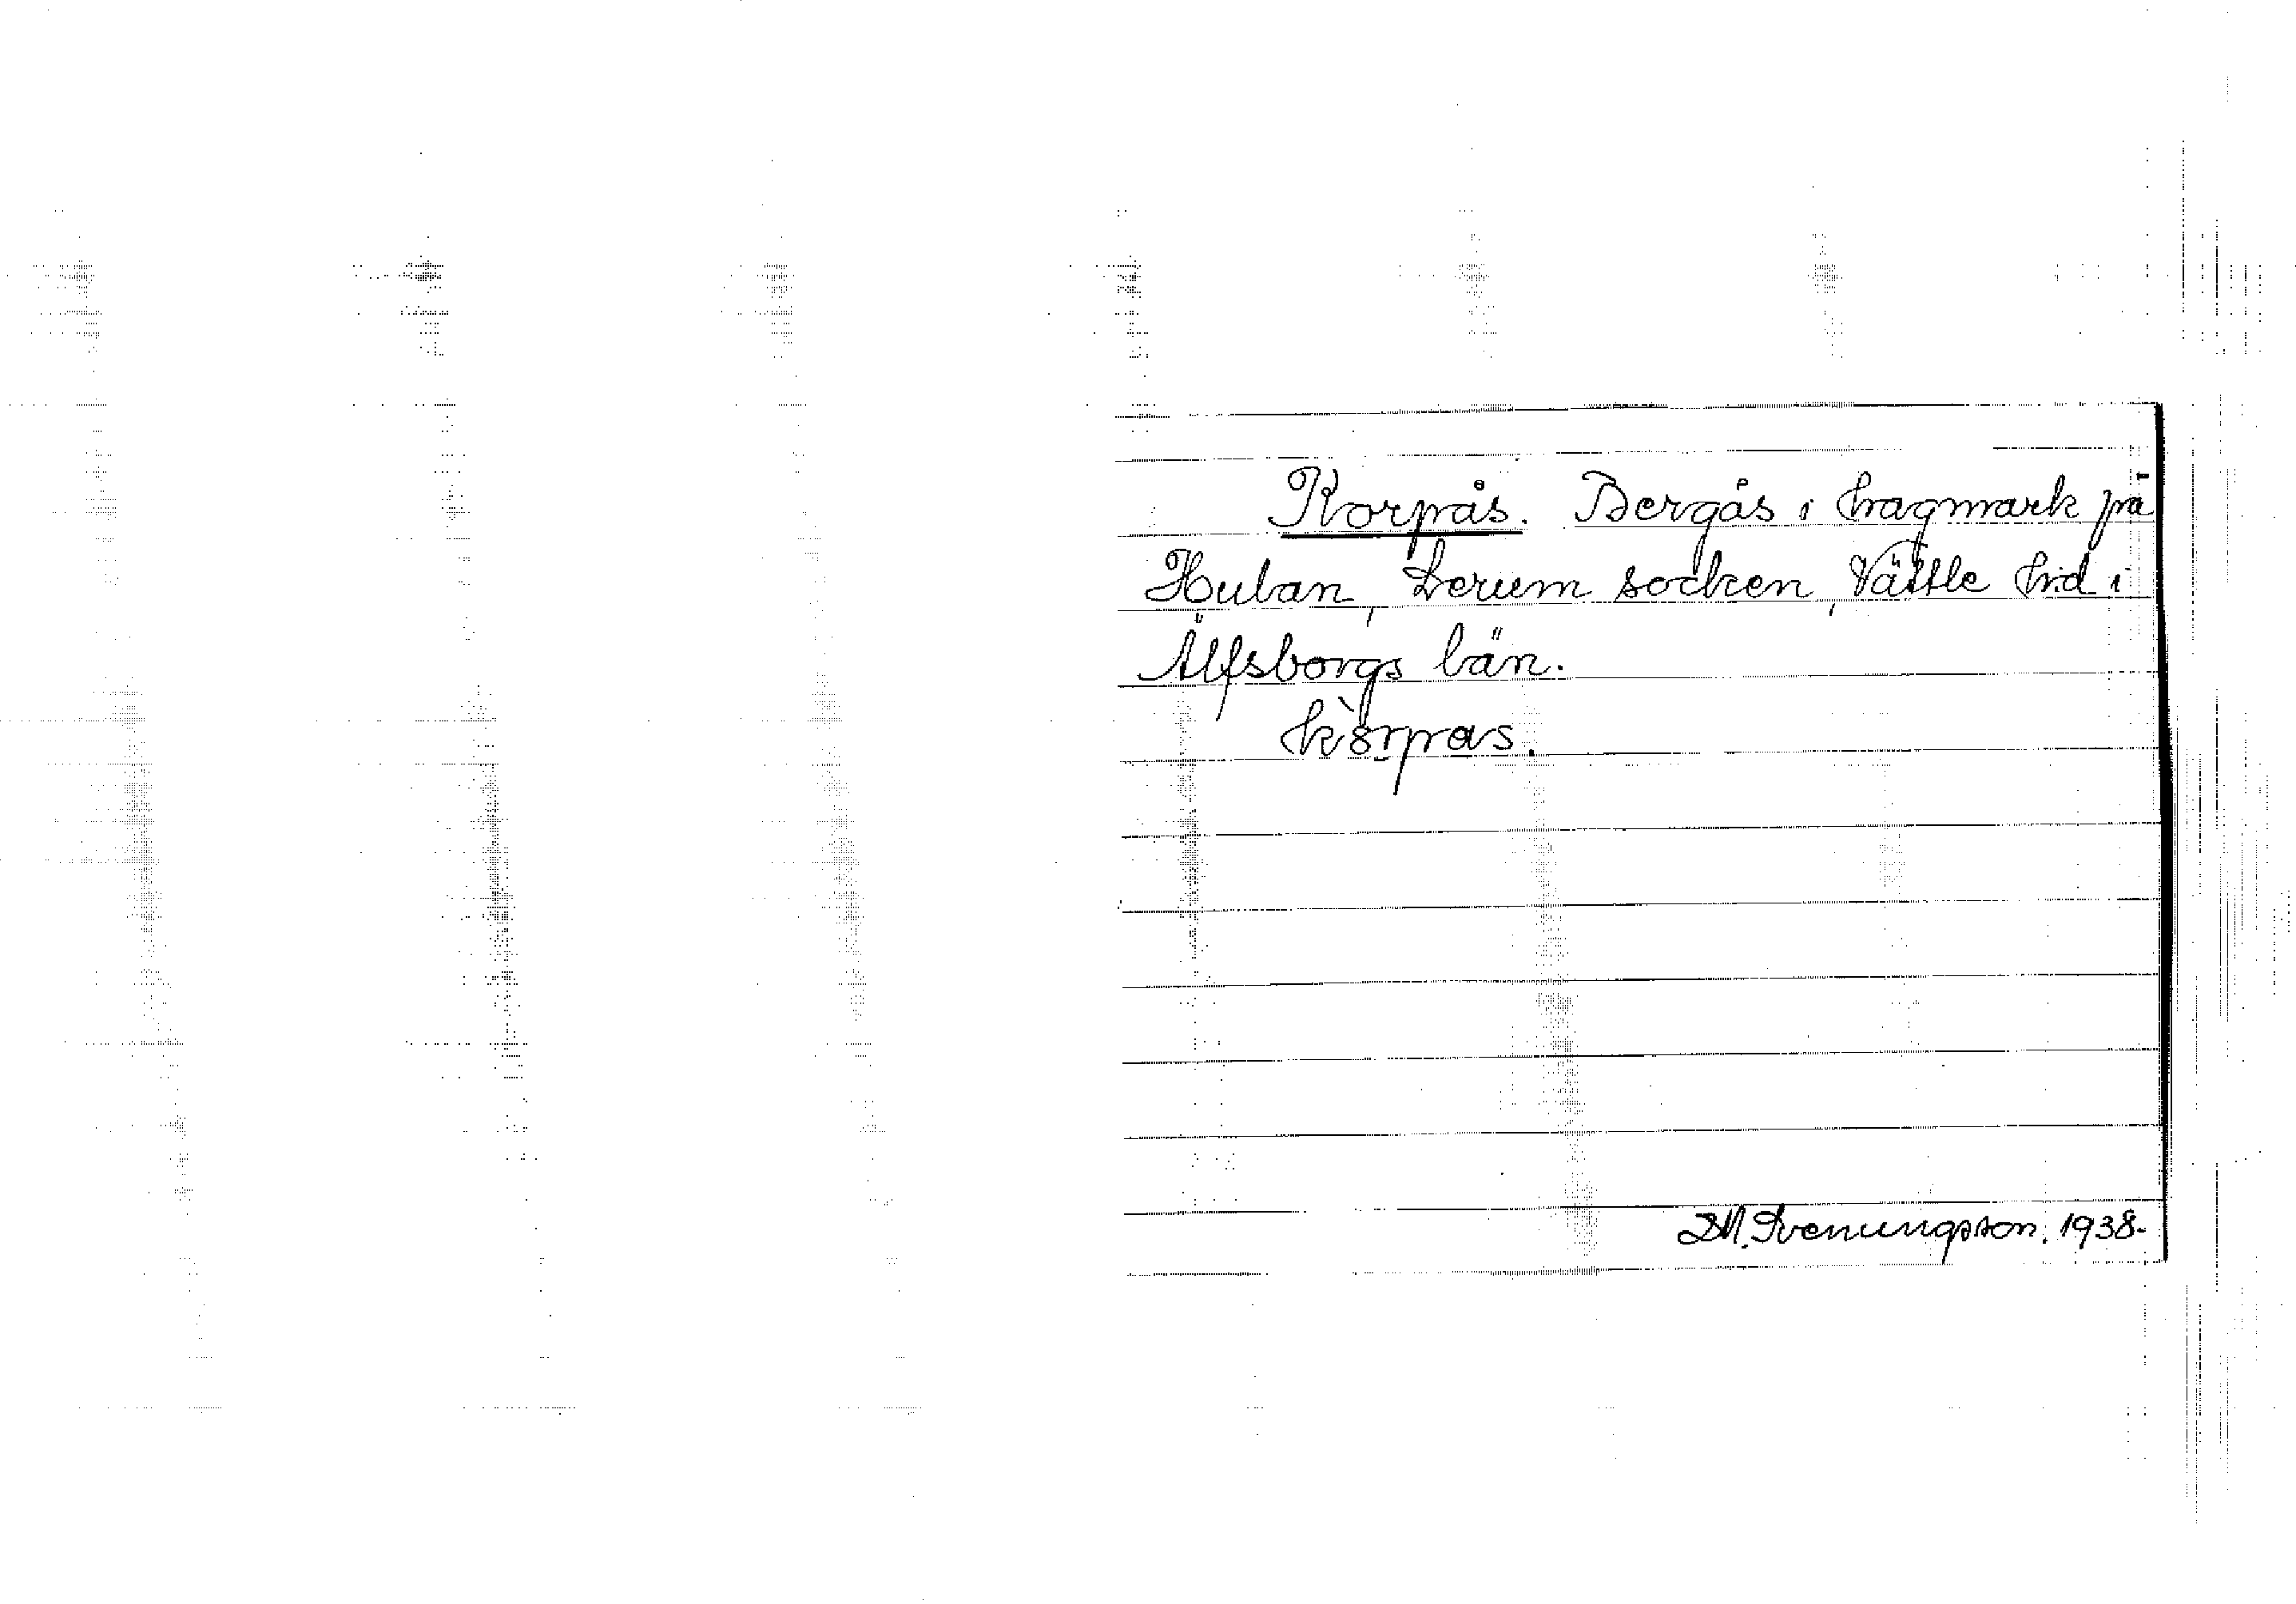 Korpås. Bergås i hagmark på
Hulan, Lerum socken, Vättle hd i
Älfsborgs län.
kòrpas.
D.M. Svenungsson. 1938.